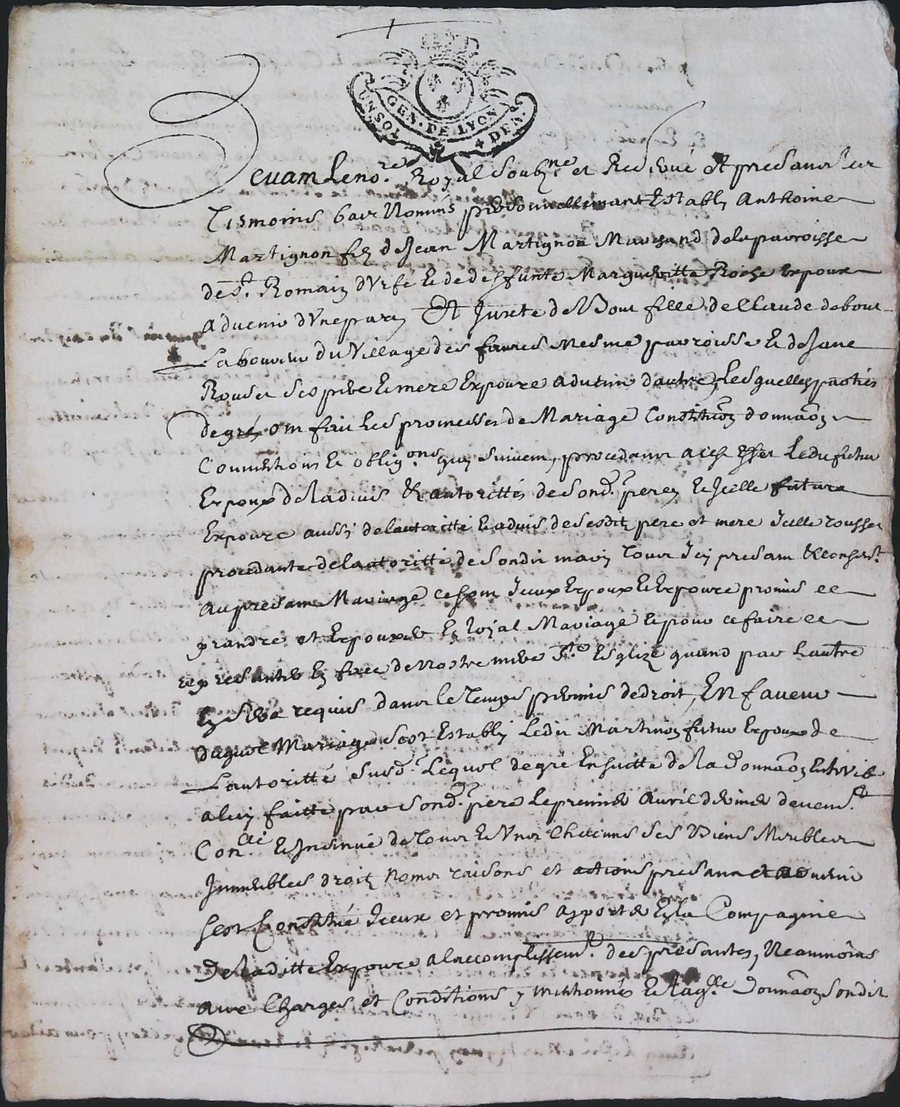 UN SOL GEN. DE LYON 4 DEN.
Pardevam Le no.re Royal Soubz.ne et Res et presans les
Tesmoins bas Nommés personnellemant Establÿ Anthoine
Martignon filz de Jean Martignon Marchand de la parroisse
de S.t Romain d'Urfé et de deffunte Margueritte Espoux
aduenir d'Une part Et de Bour fille de Claude de bour
Laboureur du Village des faures Mesme parroisse et de Jane
Rousset ses pere et mere Espouze aduenir d'autre Lesquelles parties
de gré ont fait Les promesses de Mariage Constitu͠on donna͠on
Conuentions et oblig.ons quÿ suivent, procedants a cest effet Ledit futur
Espoux de laduis et autoritté de Sond. pere et Jcelle future
Espouze aussÿ de lautoritté et aduis de sesdits pere et mere Jcelle rousset
procedante de lautoritté de Sondit mary tous Jcy presans et Consent.t
Au presant Mariage ce sont Jceux Espoux et Espouze promis se
prandre et Espouzer En loÿal Mariage et pour ce faire se
represanter En face de Nostre mere S.te Esglize quand par Lautre
En Sera requis dans le Temps permis de droit, En faueur
duquel Mariage s'est Establÿ Ledit Martinon futur Espoux de
L'autoritté susd. Lequel de gré Ensuitte de La donna͠on Entre Vifs
a luÿ faitte par Sond. pere Le premier Auril dernier
Con.lé et Jnsinué de Tous et Uns Chacuns ses Biens Meubles
Jmmeubles droitz Noms raisons et actions presans et aduenir
s'est Constitué Jceux et promis apporter En la Compagnie
de laditte Espouze a lacomplissem.t des presantes, Neaumoins
aux Charges et Conditions ÿ mentionnés et laq.lle Donna͠on Sondit